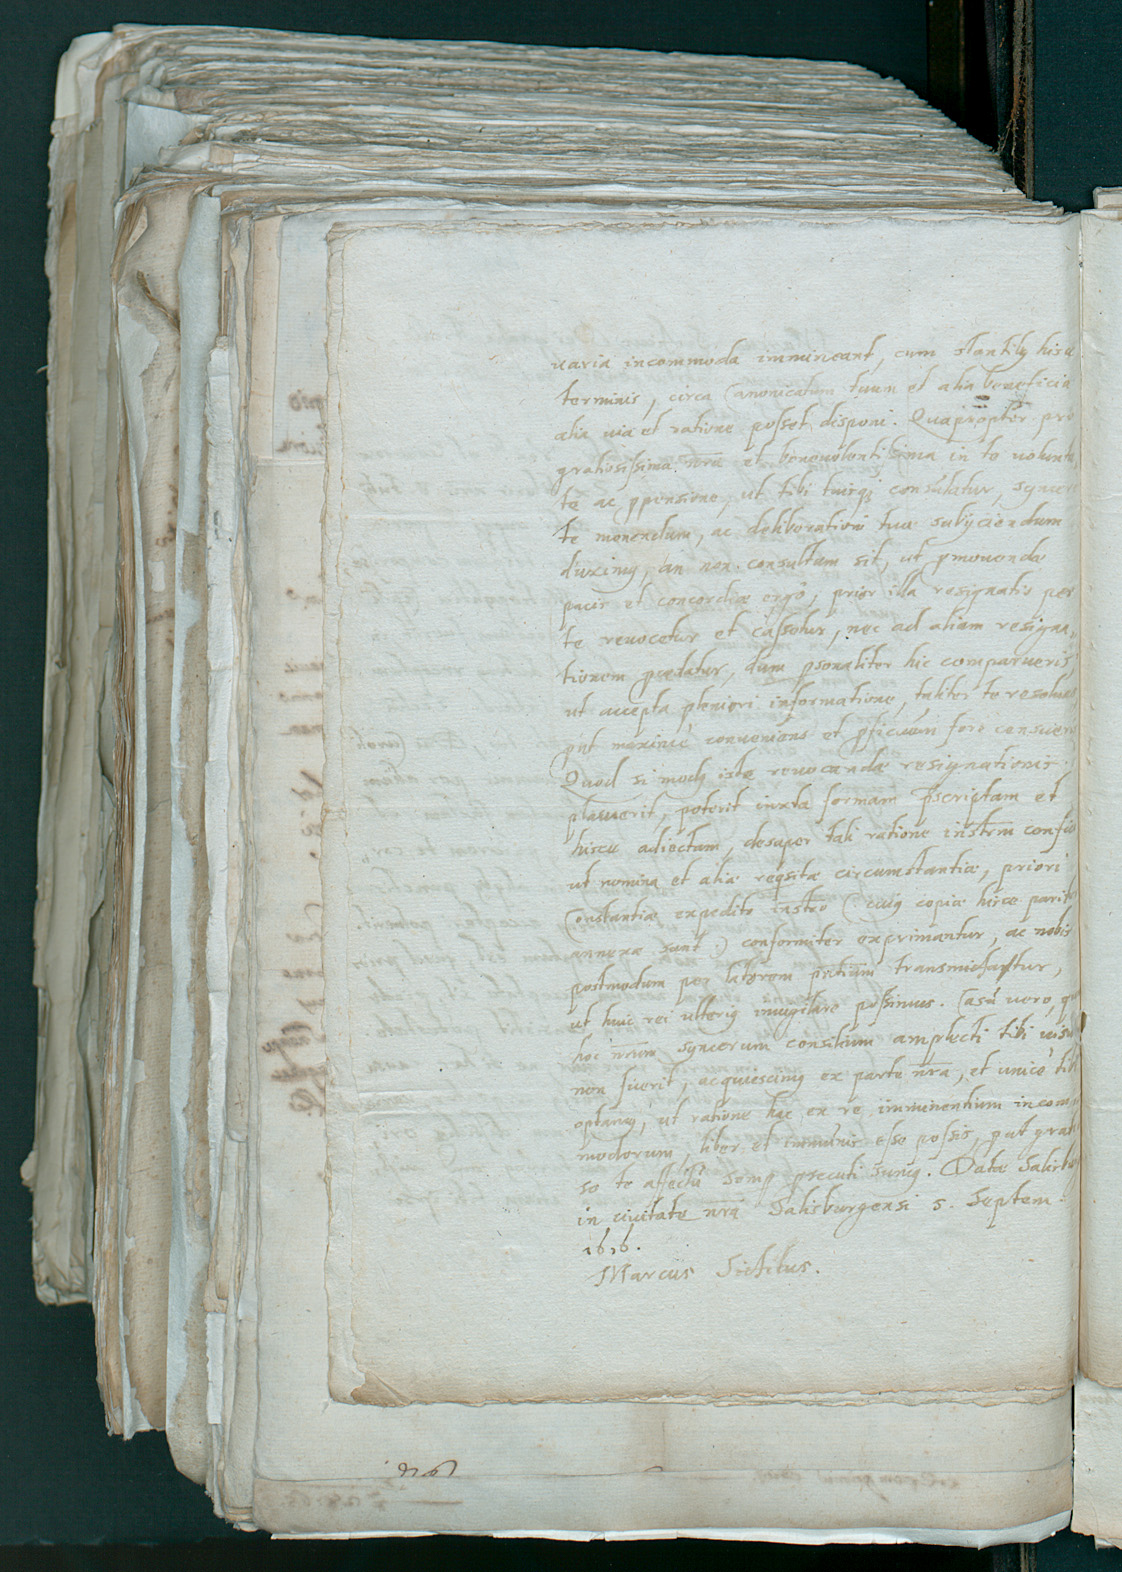 varia incommoda immineant, cum stantib9 hisce
terminis, circa Canonicatum tuum et alia beneficia
alia via et ratione posset disponi. Quapropter pro
gratiosissima nrã et beneuolentissima in te volunta-
te ac ppensione, ut tibi tuisq; consulatur, syncere
te monendum, ac deliberationi tuæ subijciendum
duximq, an non consultum sit, ut pmouendæ
pacis et concordiæ ergô, prior illa resignatio per
te reuocetur et cassetur, nec ad aliam resigna-
tionem procedatur, dum psonaliter hic comparueris,
ut accepta pleniori informatione, taliter te resoluas
put maximè conueniens et pficuum fore censueris
Quod si modq iste reuocandæ resignationis
placuerit, poterit iuxta formam pscriptam et
hisce adiectam, desuper tali ratione instrm confici
ut nomina et aliæ reqsitæ circumstantiæ, priori
Constantiæ expedito instro (cuiq copiæ hisce pariter
annexæ sunt) conformiter exprimantur, ac nobis
postmodum per latorem pntium transmittatur,
ut huic rei ulteriq inuigilare possimus. Casu vero, quo
hoc nrum syncerum consilium amplecti tibi uisum
non fuerit, acquiescimq ex parte nrã, et unicè tibi
optamq, ut ratione hac ex re imminentium incom-
modorum, liber et immunis esse possis, put gratio-
so te affectu semp psecuti sumq. Datæ Salisburgi
in ciuitate nrã Salisburgensi 5. Septem:
1616.
Marcus Sitticus.